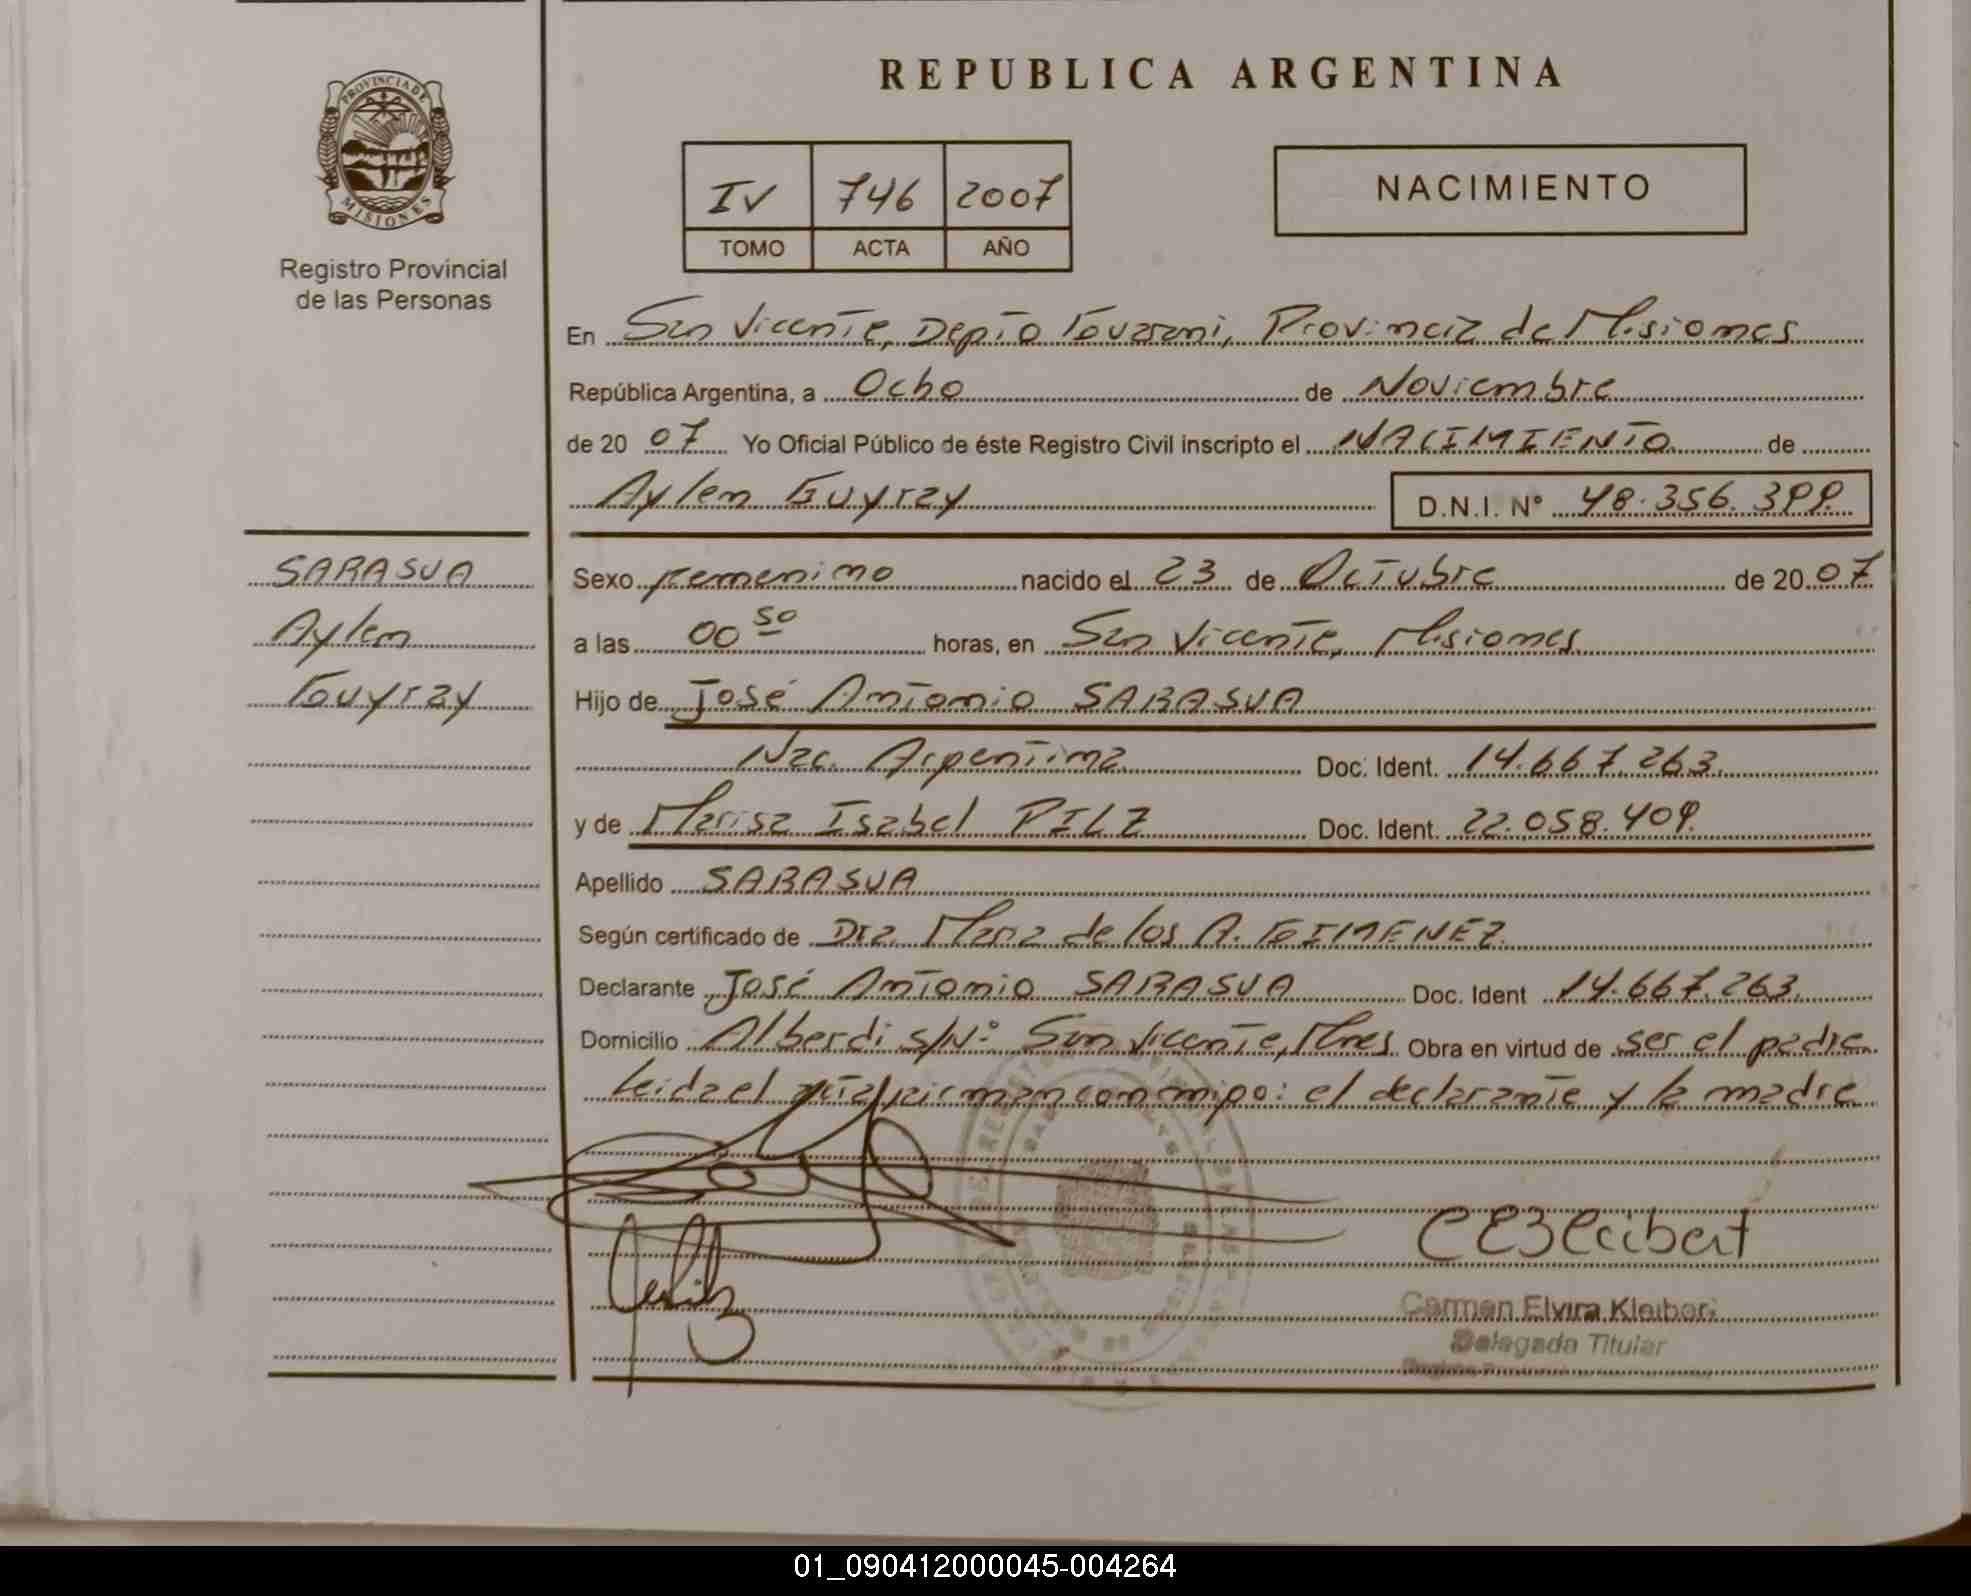 REPUBLICA ARGENTINA
PROVINCIA DE
MISIONES
Registro Provincial
de las Personas
IV 746 2007
TOMO ACTA AÑO
NACIMIENTO
En San Vicente, Depto Guarani, Provincia de Misiones
República Argentina, a Ocho de Noviembre
de 20 07 Yo Oficial Público de éste Registro Civil inscripto el NACIMIENTO de
Aylen Guyray D.N.I. N° 48.356.399.
SARASUA
Aylen
Guyray
Sexo femenino nacido el 23 de Octubre de 20 07
a las 00 50 horas, en San Vicente, Misiones
Hijo de José Antonio SARASUA
Nac. Argentina Doc. Ident. 14.667.263.
y de Marisa Isabel PILZ Doc. Ident. 22.058.409.
Apellido SARASUA
Según certificado de Dra. Maria de los A. GIMENEZ
Declarante José Antonio SARASUA Doc. Ident 14.667.263.
Domicilio Alberdi s/N° San Vicente, Mnes Obra en virtud de ser el padre
Leida el acta firman conmigo: el declarante y la madre
Carmen Elvira Kleibert
Delegada Titular
01_090412000045-004264